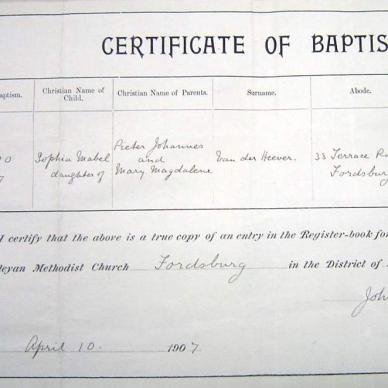 CERTIFICATE OF BAPTIS
aptism. Christian Name of Child. Christian Name of Parents. Surname. Abode.
Sophia Mabel daughter of Pieter Johannes and Mary Magdalene Van der Heever. 33 Terrace Ro Fordsburg
I certify that the above is a true copy of an entry in the Register-book for
leyan Methodist Church Fordsburg in the District of
John
April 10. 1907